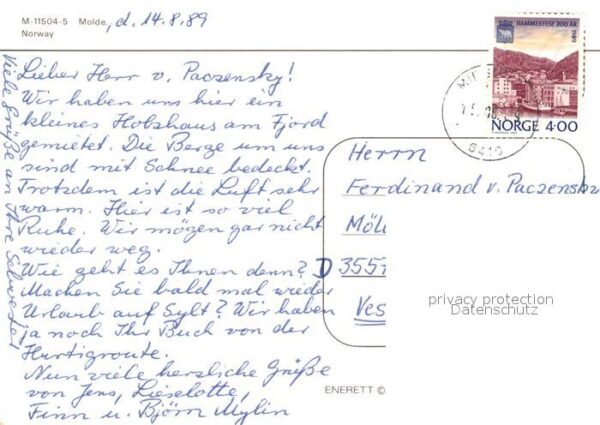 M-11504-5 Molde, d. 14.8.89
Norway
Lieber Herr v. Paczensky!
Wir haben uns hier ein
kleines Holzhaus am Fjord
gemietet. Die Berge um uns
sind mit Schnee bedeckt.
Trotzdem ist die Luft sehr
warm. Hier ist so viel
Ruhe. Wir mögen gar nicht
wieder weg.
Wie geht es Ihnen denn?
Machen Sie bald mal wieder
Urlaub auf Sylt? Wir haben
ja noch Ihr Buch von der
Hurtigroute.
Nun viele herzliche Grüße
von Jens, Lieselotte,
Finn u. Björn Mylin
Viele Grüße an Ihre Schwester
HAMMERFEST 200 ÅR
1989
NORGE 4.00
6419
Herrn
Ferdinand v. Paczensk
Möl
D 355
Ves
privacy protection
Datenschutz
ENERETT ©